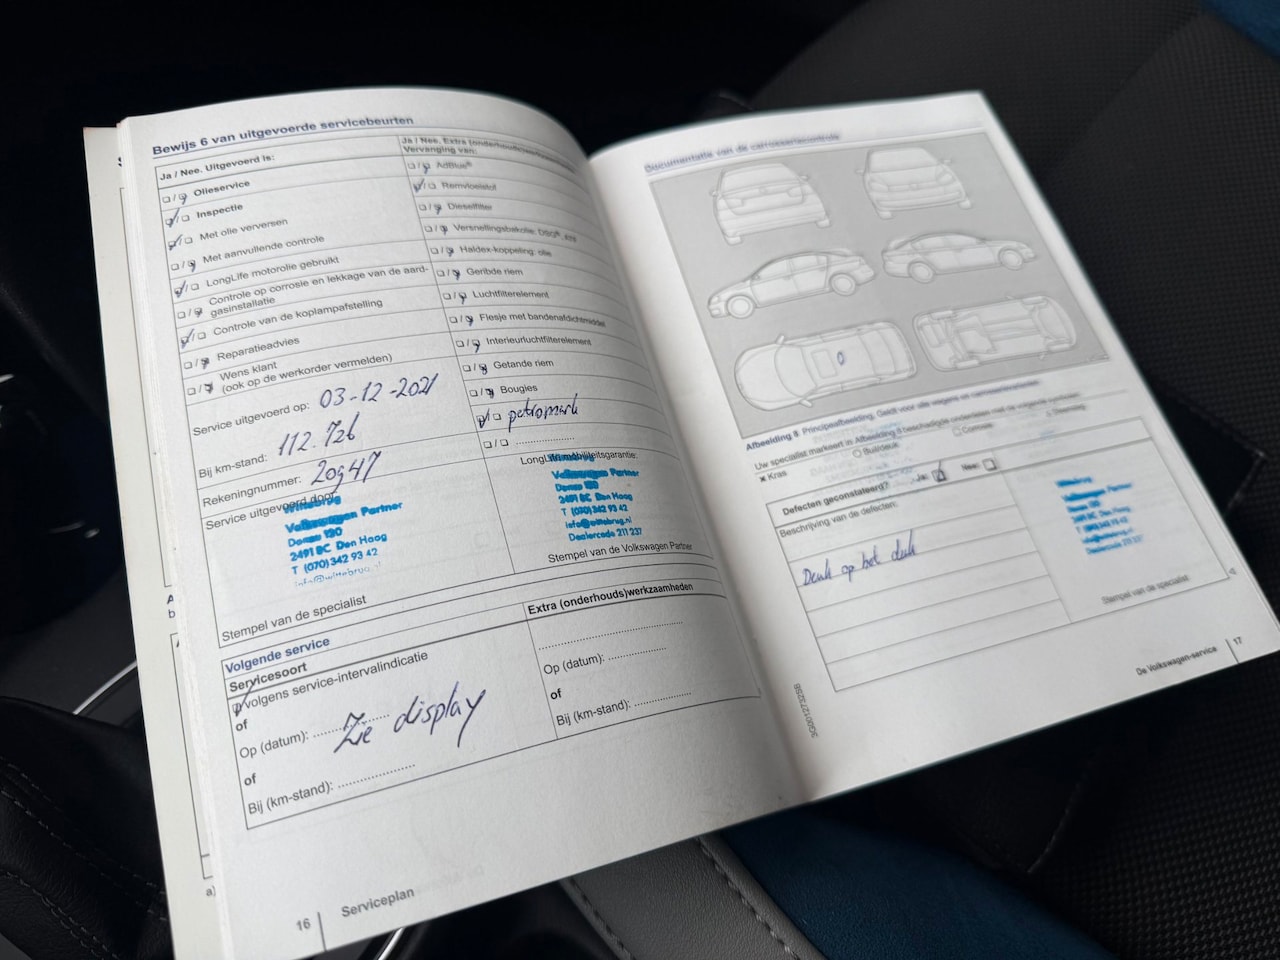 Bewijs 6 van uitgevoerde servicebeurten
Ja / Nee. Uitgevoerd is:
Olieservice
Inspectie
Met olie verversen
Met aanvullende controle
LongLife motorolie gebruikt
Controle op corrosie en lekkage van de aard-
gasinstallatie
Controle van de koplampafstelling
Reparatieadvies
Wens klant
(ook op de werkorder vermelden)
Service uitgevoerd op: 03-12-2021
Bij km-stand: 112.726
Rekeningnummer: 20947
Service uitgevoerd door:
Wittebrug
Volkswagen Partner
Donau 120
2491 BC Den Haag
T (070) 342 93 42
info@wittebrug.nl
Stempel van de specialist
Ja / Nee. Extra (onderhouds)
Vervanging van:
AdBlue®
Remvloeistof
Dieselfilter
Versnellingsbakolie: DSG®,
Haldex-koppeling: olie
Geribde riem
Luchtfilterelement
Flesje met bandenafdichtmiddel
Interieurluchtfilterelement
Getande riem
Bougies
petromark
LongLife mobiliteitsgarantie:
Wittebrug
Volkswagen Partner
Donau 120
2491 BC Den Haag
T (070) 342 93 42
info@wittebrug.nl
Dealercode 211 237
Stempel van de Volkswagen Partner
Volgende service
Servicesoort
volgens service-intervalindicatie
of
Op (datum): ............
Zie display
of
Bij (km-stand): ............
Extra (onderhouds)werkzaamheden
Op (datum): ............
of
Bij (km-stand): ............
16 | Serviceplan
Documentatie van de carrosseriecontrole
0
Afbeelding 8 Principeafbeelding. Geldt voor alle wagens en carrosserievarianten
Uw specialist markeert in Afbeelding 8 beschadigde onderdelen met de volgende symbolen:
x Kras
O Buil/deuk
Corrosie
Steenslag
Defecten geconstateerd? Ja: Nee:
Beschrijving van de defecten:
Deuk op het dak
Wittebrug
Volkswagen Partner
Donau 120
2491 BC Den Haag
T (070) 342 93 42
info@wittebrug.nl
Dealercode 211 237
Stempel van de specialist
5G0012732SB
De Volkswagen-service | 17